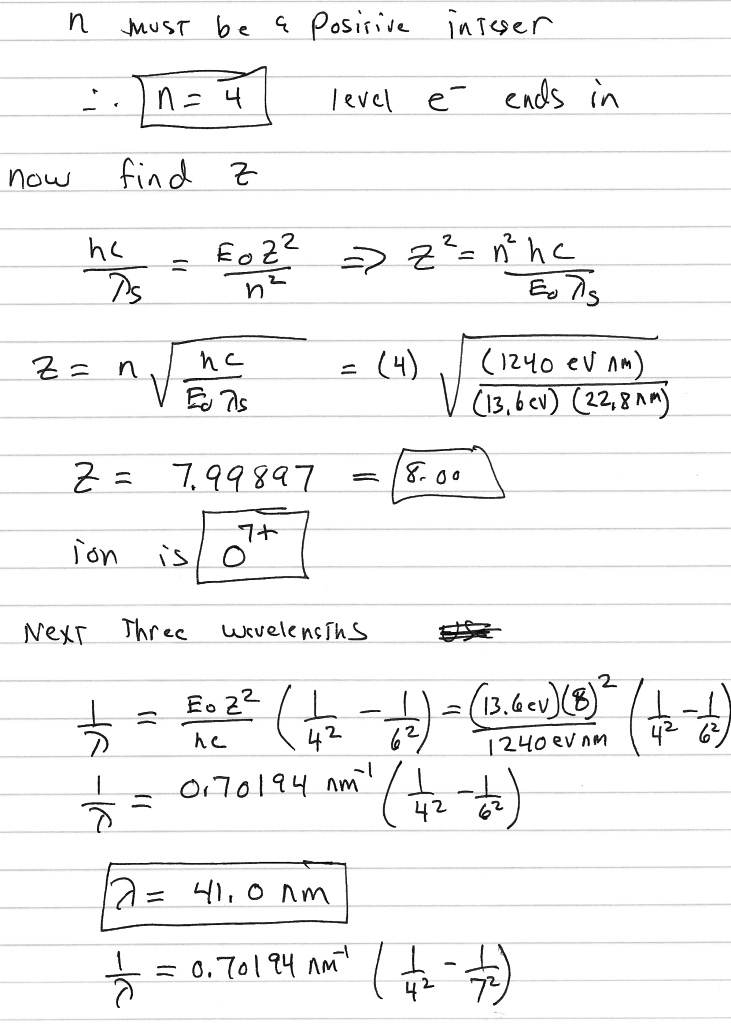 n must be a positive integer
∴ n = 4 level e⁻ ends in
now find Z
hc/λs = E₀Z²/n² ⇒ Z² = n²hc/E₀λs
Z = n √(hc/E₀λs) = (4) √((1240 eV nm)/(13.6 eV)(22.8 nm))
Z = 7.99897 = 8.00
ion is O⁷⁺
Next Three wavelengths
1/λ = E₀Z²/hc (1/4² − 1/6²) = (13.6 eV)(8)²/1240 eV nm (1/4² − 1/6²)
1/λ = 0.70194 nm⁻¹ (1/4² − 1/6²)
λ = 41.0 nm
1/λ = 0.70194 nm⁻¹ (1/4² − 1/7²)